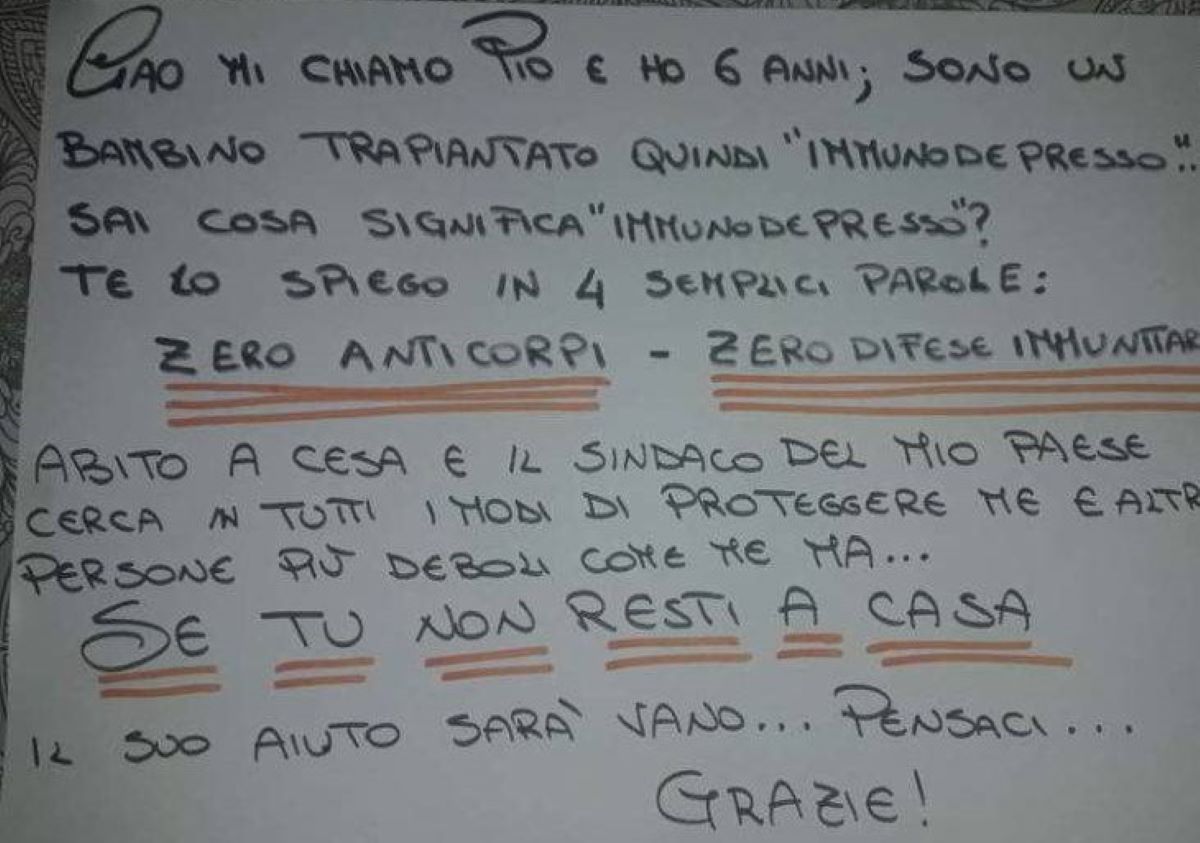 CIAO MI CHIAMO PIO E HO 6 ANNI; SONO UN
BAMBINO TRAPIANTATO QUINDI "IMMUNODEPRESSO"..
SAI COSA SIGNIFICA "IMMUNODEPRESSO"?
TE LO SPIEGO IN 4 SEMPLICI PAROLE:
ZERO ANTICORPI - ZERO DIFESE IMMUNITAR
ABITO A CESA E IL SINDACO DEL MIO PAESE
CERCA IN TUTTI I MODI DI PROTEGGERE ME E ALTR
PERSONE PIÙ DEBOLI COME ME MA...
SE TU NON RESTI A CASA
IL SUO AIUTO SARÀ VANO... PENSACI...
GRAZIE!